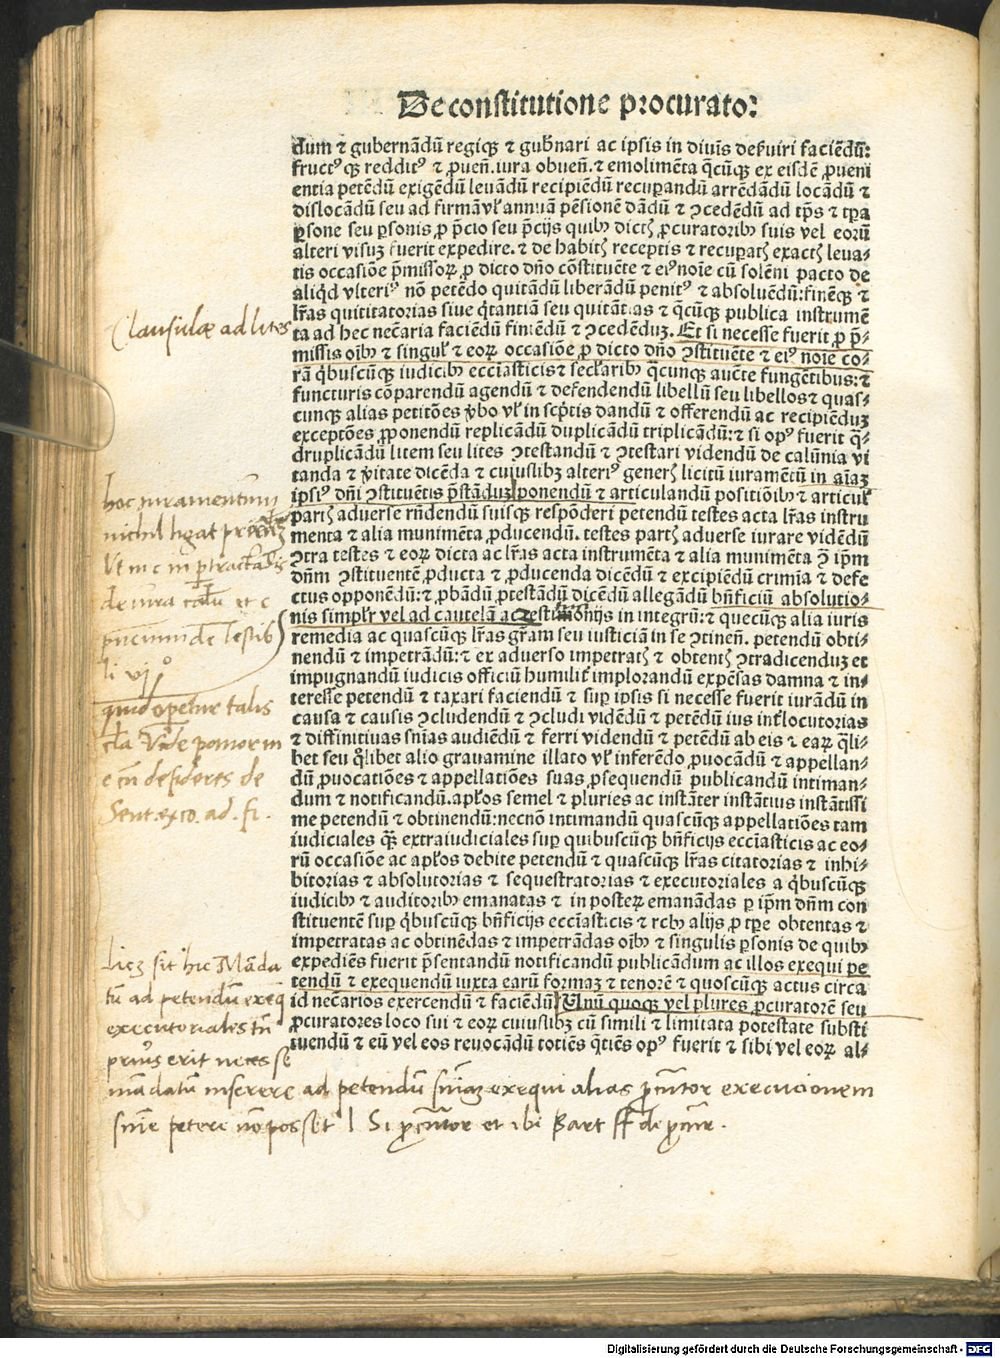 De constitutione procurator
dum ⁊ gubernādū regiqȝ ⁊ gub̄nari ac ipsis in diuīs deẜuiri faciēdū:
fructꝰ qȝ redditꝰ ⁊ ꝓuen̄. iura obuen̄. ⁊ emolimēta q̄cūqȝ ex eisdē ꝓueni
entia petēdū exigēdū leuādū recipiēdū recuꝑandū arrēdādū locādū ⁊
dislocādū seu ad firmā vl̓ annuā pēsionē dādū ⁊ ꝯcedēdū ad tp̄s ⁊ tp̄ra
ꝑsone seu ꝑsonis ꝓ p̄cio seu p̄cijs quibꝰ dictꝭ ꝓcuratoribꝰ suis vel eorū
alteri visuȝ fuerit expedire. ⁊ de habitꝭ receptis ⁊ recuꝑatꝭ exactꝭ leua-
tis occasiōe p̄missoꝝ ꝓ dicto dn̄o cōstituēte ⁊ eiꝰ noīe cū solēni pacto de
aliqd̓ vlteriꝰ nō petēdo quitādū liberādū penitꝰ ⁊ absoluēdū: finēqȝ ⁊
lr̄as quititatorias siue q̓tantiā seu quitātias ⁊ q̄cūqȝ publica instrumē
ta ad hec nec̄aria faciēdū finiēdū ⁊ ꝯcedēduȝ. Et si necesse fuerit ꝓ p̄-
missis oībꝰ ⁊ singul̓ ⁊ eoꝝ occasiōe ꝓ dicto dn̄o ꝯstituēte ⁊ eiꝰ noīe co-
rā q̓buscūqȝ iudicibꝰ ecciāsticis ⁊ secl̓aribꝰ q̄cunqȝ auc̄te fungētibus: ⁊
functuris cōparendū agendū ⁊ defendendū libellū seu libellos ⁊ quas-
cunqȝ alias petitōes v̓bo vl̓ in scp̄tis dandū ⁊ offerendū ac recipiēduȝ
exceptōes ꝓponendū replicādū duplicādū triplicādū: ⁊ si opꝰ fuerit q̄-
druplicādū litem seu lites ꝯtestandū ⁊ ꝯtestari videndū de calūnia vi
tanda ⁊ v̓itate dicēda ⁊ cuiuslibȝ alteriꝰ generꝭ licitū iuramētū in aīaȝ
ipsiꝰ dn̄i ꝯstituētis p̄standuȝ ponendū ⁊ articulandū positiōibꝰ ⁊ articul̓
partꝭ aduerse rn̄dendū suisqȝ respōderi petendū testes acta lr̄as instru
menta ⁊ alia munimēta ꝓducendū. testes partꝭ aduerse iurare vidēdū
ꝯtra testes ⁊ eoꝝ dicta ac lr̄as acta instrumēta ⁊ alia munimēta ꝯ̄ ip̄m
dn̄m ꝯstituentē ꝓducta ⁊ ꝓducenda dicēdū ⁊ excipiēdū crimīa ⁊ defe
ctus opponēdū: ⁊ ꝓbādū ꝓtestādū dicēdū allegādū bn̄ficiū absolutio-
nis simpl̓r vel ad cautelā ac testimōnijs in integrū: ⁊ quecūqȝ alia iuris
remedia ac quascūqȝ lr̄as gr̄am seu iusticiā in se ꝯtinen̄. petendū obti-
nendū ⁊ impetrādū: ⁊ ex aduerso impetratꝭ ⁊ obtentꝭ ꝯtradicenduȝ et
impugnandū iudicis officiū humilit̓ implorandū expēsas damna ⁊ in-
teresse petendū ⁊ taxari faciendū ⁊ suꝑ ipsis si necesse fuerit iurādū in
causa ⁊ causis ꝯcludendū ⁊ ꝯcludi vidēdū ⁊ petēdū ius int̓locutorias
⁊ diffinitiuas sn̄ias audiēdū ⁊ ferri videndū ⁊ petēdū ab eis ⁊ eaꝝ q̄li-
bet seu q̓libet alio grauamine illato vl̓ inferēdo ꝓuocādū ⁊ appellan-
dū ꝓuocatiōes ⁊ appellatiōes suas ꝓsequendū publicandū intiman-
dum ⁊ notificandū. apl̓os semel ⁊ pluries ac instāter instātius instātissi
me petendū ⁊ obtinendū: necnō intimandū quascūqȝ appellatiōes tam
iudiciales q̄ȝ extraiudiciales suꝑ quibuscūqȝ bn̄ficijs ecciāsticis ac eo-
rū occasiōe ac apl̓os debite petendū ⁊ quascūqȝ lr̄as citatorias ⁊ inhi-
bitorias ⁊ absolutorias ⁊ sequestratorias ⁊ executoriales a q̓buscūqȝ
iudicibꝰ ⁊ auditoribꝰ emanatas ⁊ in posteꝝ emanādas ꝑ ip̄m dn̄m con
stituentē suꝑ q̓buscūqȝ bn̄ficijs ecciāsticis ⁊ rebꝰ alijs ꝓ tp̄e obtentas ⁊
impetratas ac obtinēdas ⁊ impetrādas oībꝰ ⁊ singulis ꝑsonis de quibꝰ
expediēs fuerit p̄sentandū notificandū publicādum ac illos exequi pe
tendū ⁊ exequendū iuxta earū formaȝ ⁊ tenorē ⁊ quoscūqȝ actus circa
id nec̄arios exercendū ⁊ faciēdū Unū quoqȝ vel plures ꝓcuratorē seu
ꝓcuratores loco sui ⁊ eoꝝ cuiuslibȝ cū simili ⁊ limitata potestate substi
tuendū ⁊ eū vel eos reuocādū totiēs q̓tiēs opꝰ fuerit ⁊ sibi vel eoꝝ al-
Clausulæ ad lites
hoc iuramentum
nichil ligat
de iura
li vjͦ
quid operetur talis
Sent. exco. ad. fi.
Licȝ sit hic Māda
tū ad petendū exeq̄
executoriales tn̄
prius erit necesse
mādatum inserere ad petendū sn̄iaȝ exequi alias ꝓcurator execucionem
sn̄ie petere nō posset l Si ꝓcurator et ibi Bart ff de ꝓcur.
Digitalisierung gefördert durch die Deutsche Forschungsgemeinschaft - DFG